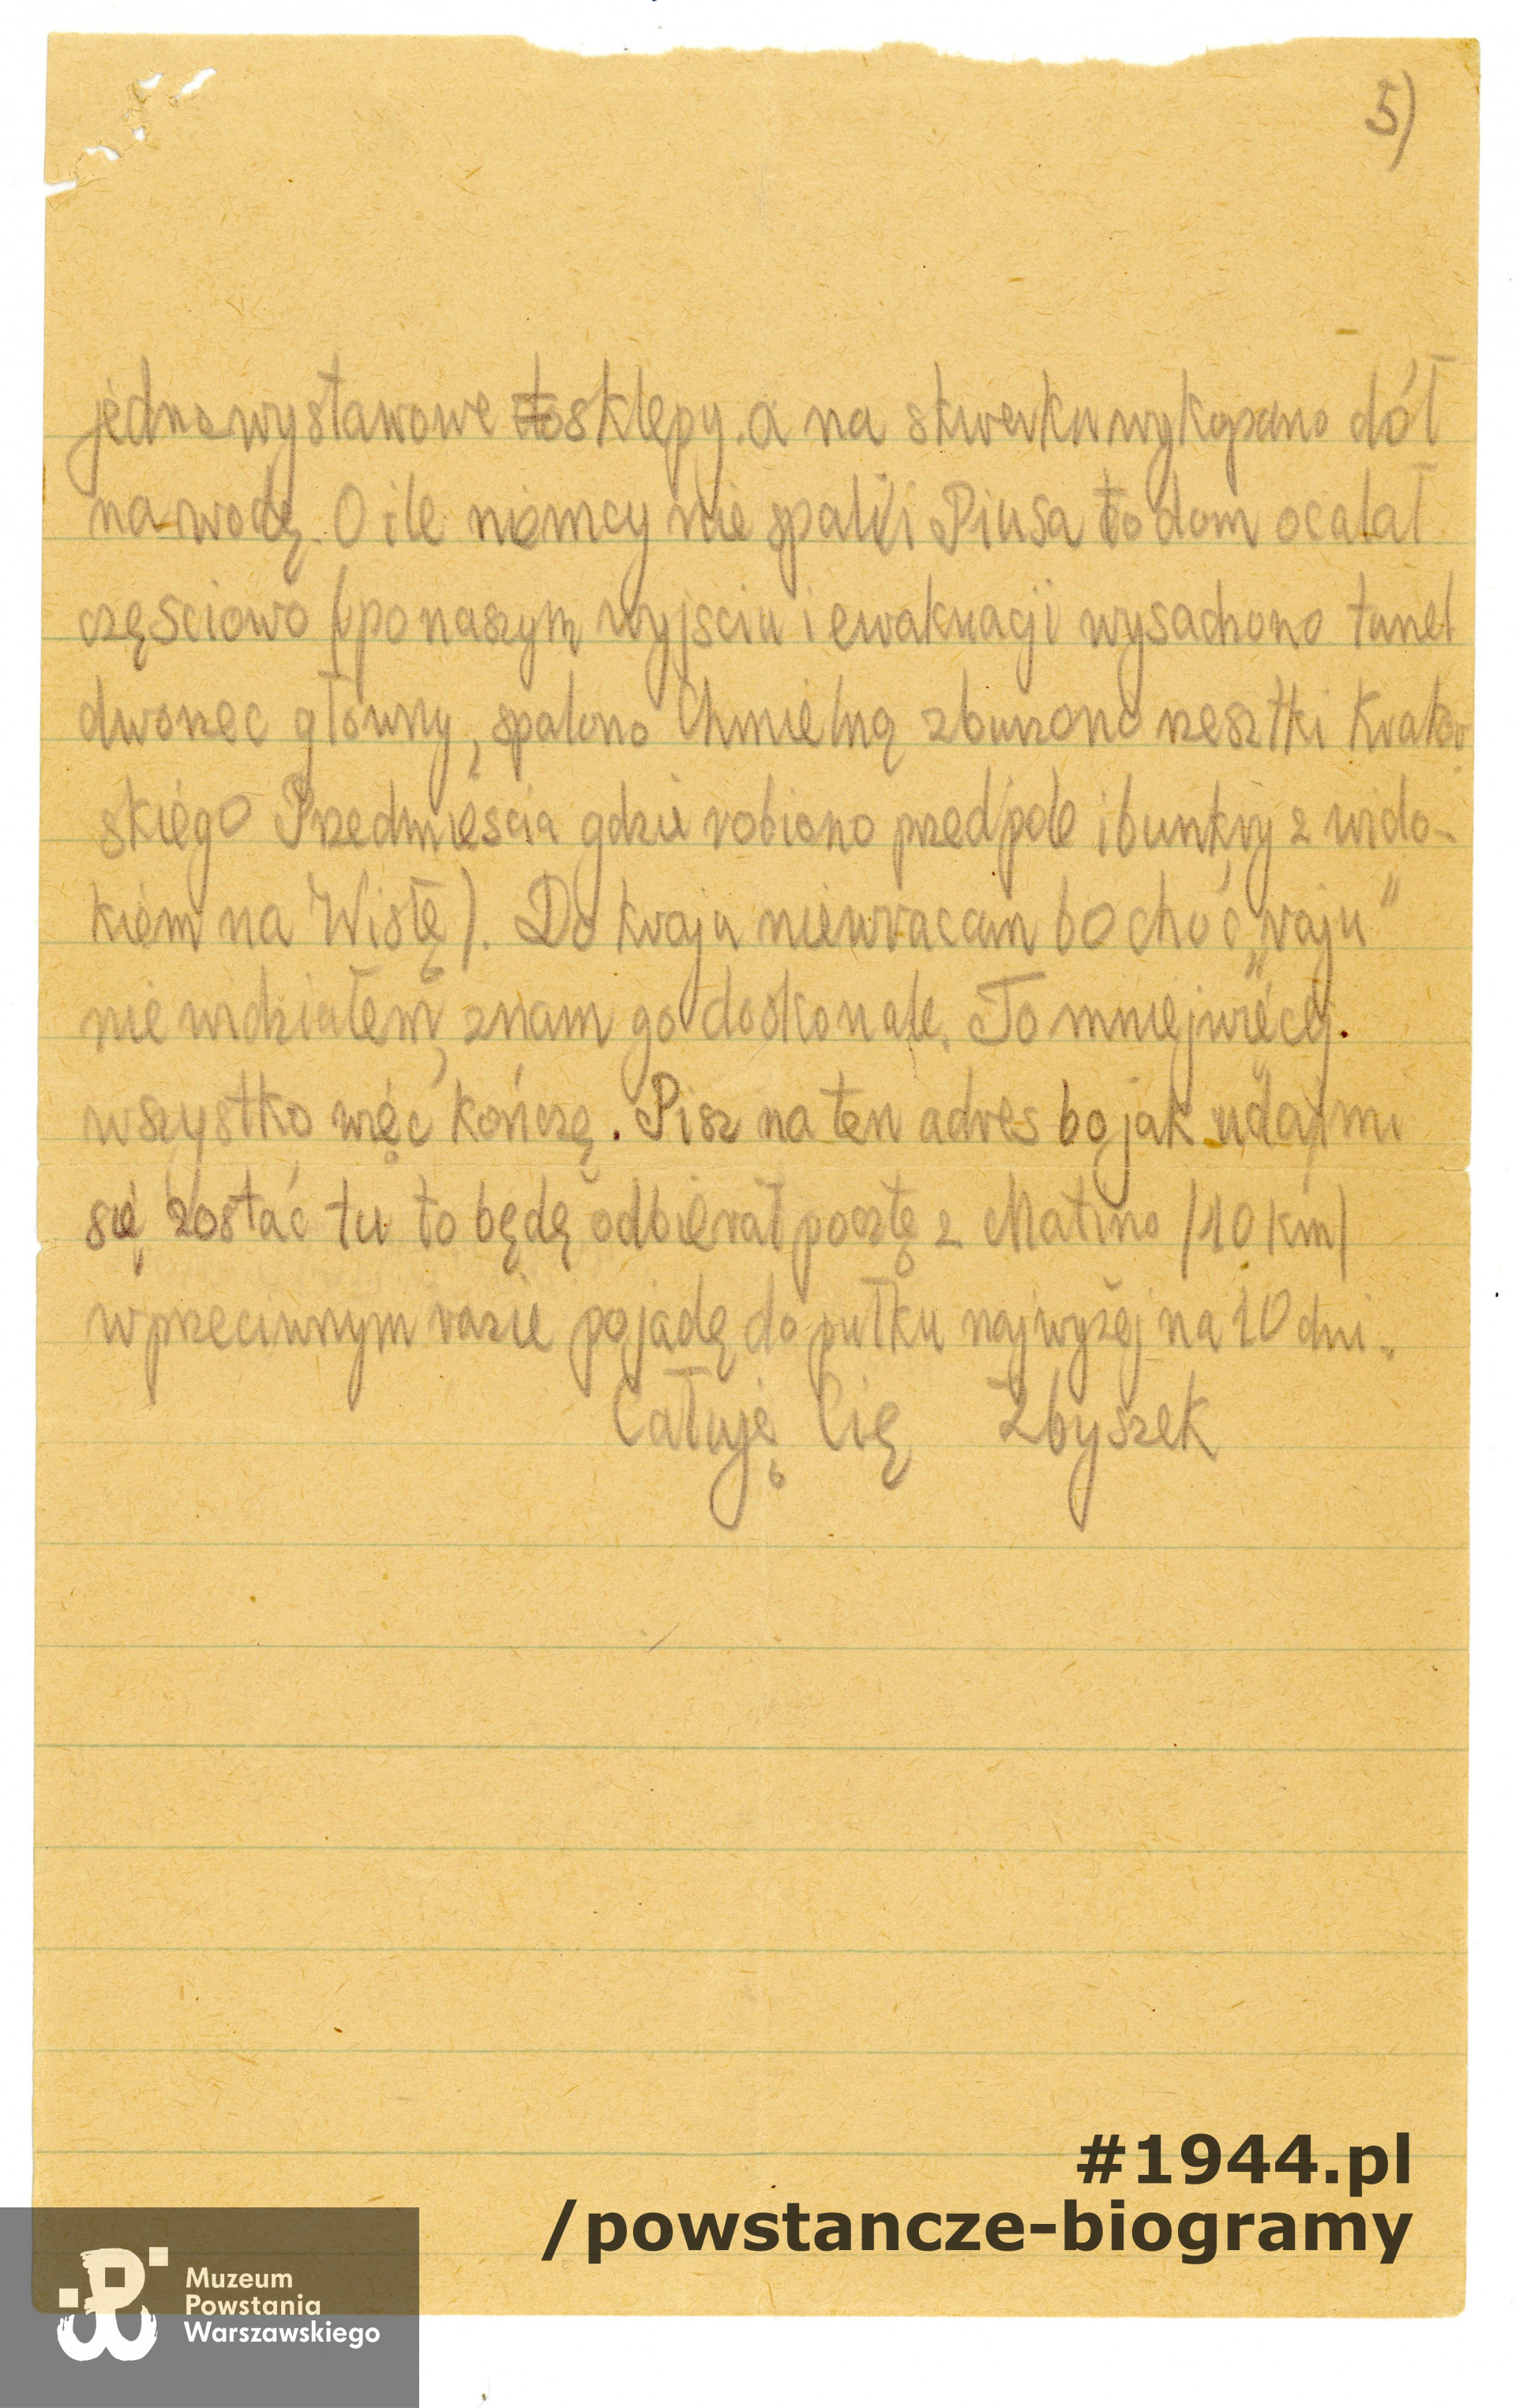 5)
jednowystawowe sklepy. a na skwerku wykopano dół
na wodę. O ile niemcy nie spalili Piusa to dom ocalał
częściowo (po naszym wyjściu i ewakuacji wysadzono tunel
dworzec główny, spalono Chmielną zburzono resztki Krakow
skiego Przedmieścia gdzie robiono przedpole i bunkry z wido-
kiem na Wisłę). Do kraju niewracam bo choć „raju"
nie widziałem, znam go doskonale. To mniejwięcej.
wszystko więc kończę. Pisz na ten adres bo jak uda mi
się zostać tu to będę odbierał pocztę z Matino /10 km/
wprzeciwnym razie pojadę do pułku najwyżej na 10 dni.
Całuję Cię Zbyszek
#1944.pl
/powstancze-biogramy
Muzeum
Powstania
Warszawskiego